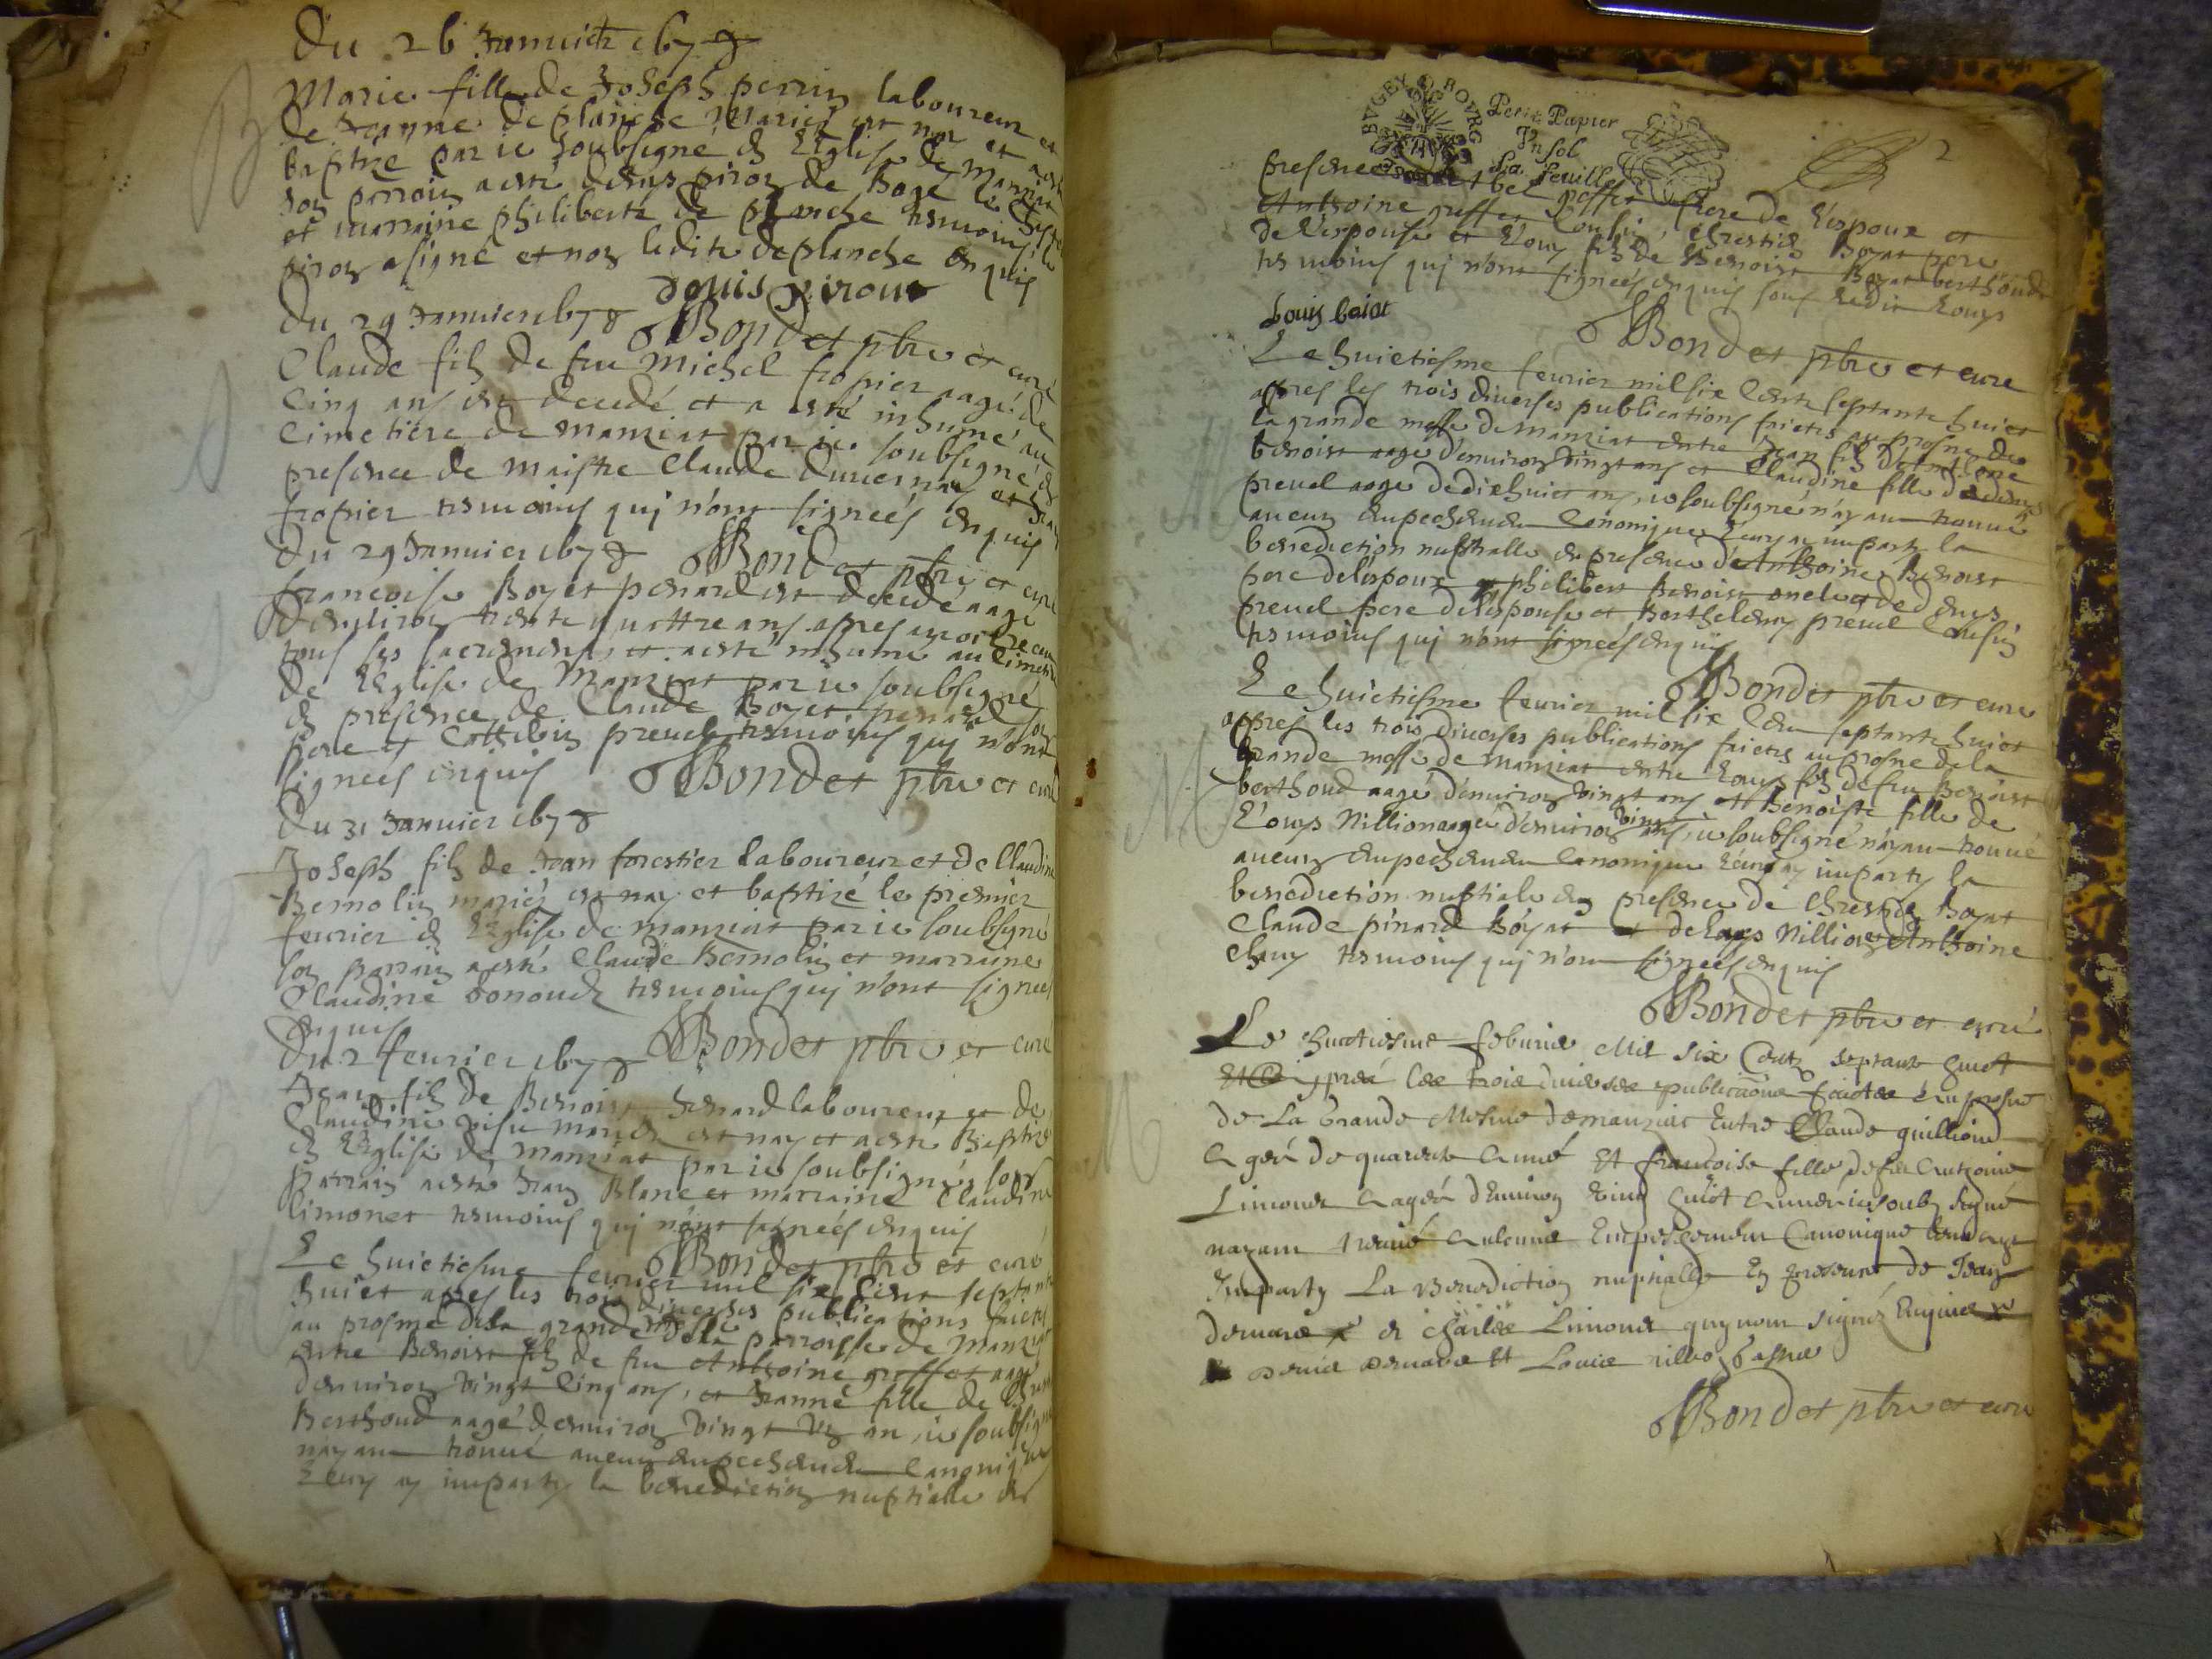 Du 26 Januier 1678
Marie fille de Joseph perrin laboureur et
de Jeanne deplanche Mariés est nee et a esté
baptizé par ie soubsigné en l'Eglise de Manziat
son parrain a esté denys piron de Bagé le
et marraine philiberte de planche tesmoins le
piron a signé et non ladite deplanche enquis
denis piron
Du 29 Januier 1678 Bondet pbre et curé
Claude filz de feu Michel fropier aagé de
Cinq ans est decedé et a esté inhumé au
Cimetiére de manziat par ie soubsigné en
presence de maistre Claude duuernay et Jean
fropier tesmoins qui n'ont signeés enquis
Du 29 Januier 1678 Bondet pbre et curé
francoise Boyet penard est decedé aagé
d'enuiron trente quattre ans apres auoir receu
tous ses sacremens, et a esté inhumé au Cimetiere
de l'Eglise de Manziat par ie soubsigné
en presence de Claude Boyet penard son
pere et preuel tesmoins quj n'ont
signeés enquis Bondet pbre et curé
Du 31 Januier 1678
Joseph filz de Jean forestier laboureur et de Claudine
Bernolin mariés est nay et baptizé le premier
feurier en l'Eglise de manziat par ie soubsigné
son parrain a esté Claude Bernolin et marraine
Claudine tesmoins quj n'ont signeés
Enquis
Du 2 feurier 1678 Bondet pbre et curé
Jean filz de Benoist laboureur et de
Claudine mariés est nay et a esté Baptizé
en l'Eglise de Manziat par ie soubsigné son
parrain a esté Jean Blanc et marraine Claudine
limonet tesmoins quj n'ont signeés enquis
Bondet pbre et curé
Le huictiesme feurier mil six Cent septante
huict apres les trois diuerses publications faictes
au prosme de la grande messe de la parroisse de Manziat
entre Benoist filz de feu Anthoine greffet aagé
d'enuiron vingt Cinq ans, et Jeanne fille de
Berthoud aagé d'enuiron vingt un an, ie soubsigné
n'ayant trouué aucun empechement Canonique
leur ay imparty la benediction nuptialle en
BVGEY BOVRG
Petit Papier
In fol.
La feuille
2
presence greffet frere de l'espoux et
Anthoine greffet Cousin, Chrestien Boyat pere
de l'espouse et Louys filz de Benoist Boyat berthoud
tesmoins quj n'ont signeés enquis sauf ledit Louys
Louis boiat
Bondet pbre et curé
Le huictiesme feurier mil six Cents septante huict
apres les trois diuerses publications faictes au prosne de
la grande messe de manziat entre Jean filz d'Anthoine
benoist aagé d'enuiron vingt ans et Claudine fille de denys
preuel aagé de dix huict ans, ie soubsigné n'ayant trouué
aucun empechement Canonique leur ay imparty la
benediction nuptialle en presence d'Anthoine Benoist
pere de l'espoux et philibert Benoist oncle et de denys
preuel pere de l'espouse et Berthelemy preuel Cousin
tesmoins quj n'ont signeés enquis
Bondet pbre et curé
Le huictiesme feurier mil six Cent septante huict
appres les trois diuerses publications faictes au prosne de la
Grande messe de manziat entre Louys filz de feu Benoist
berthoud aagé d'enuiron vingt ans et Benoiste fille de
Louys Nillion aagé d'enuiron vingt ans, ie soubsigné n'ayant trouué
aucun empechement Canonique leur ay imparty la
benediction nuptiale en presence de Chrestien Boyat
Claude pinard Boyat et de Louys Nillion et Anthoine
Chany tesmoins quj n'ont signeés enquis
Bondet pbre et curé
Le huictiesme feburier Mil six Cents septante huict
apres les trois diuerses publications faictes au prosne
de La Grande Messe de manziat Entre Claude guillioud
agés de quarante années Et francoise fille de feu Anthoine
Limonet aagés d'Enuiron vingt huict années ie soubsigné
nayant trouué aulcune Empeschement Canonique leur ay
Imparty La Benediction nuptialle En presence de Jean
et Charles Limonet quy nont signés Enquis
denis et Louis
Bondet pbre et curé